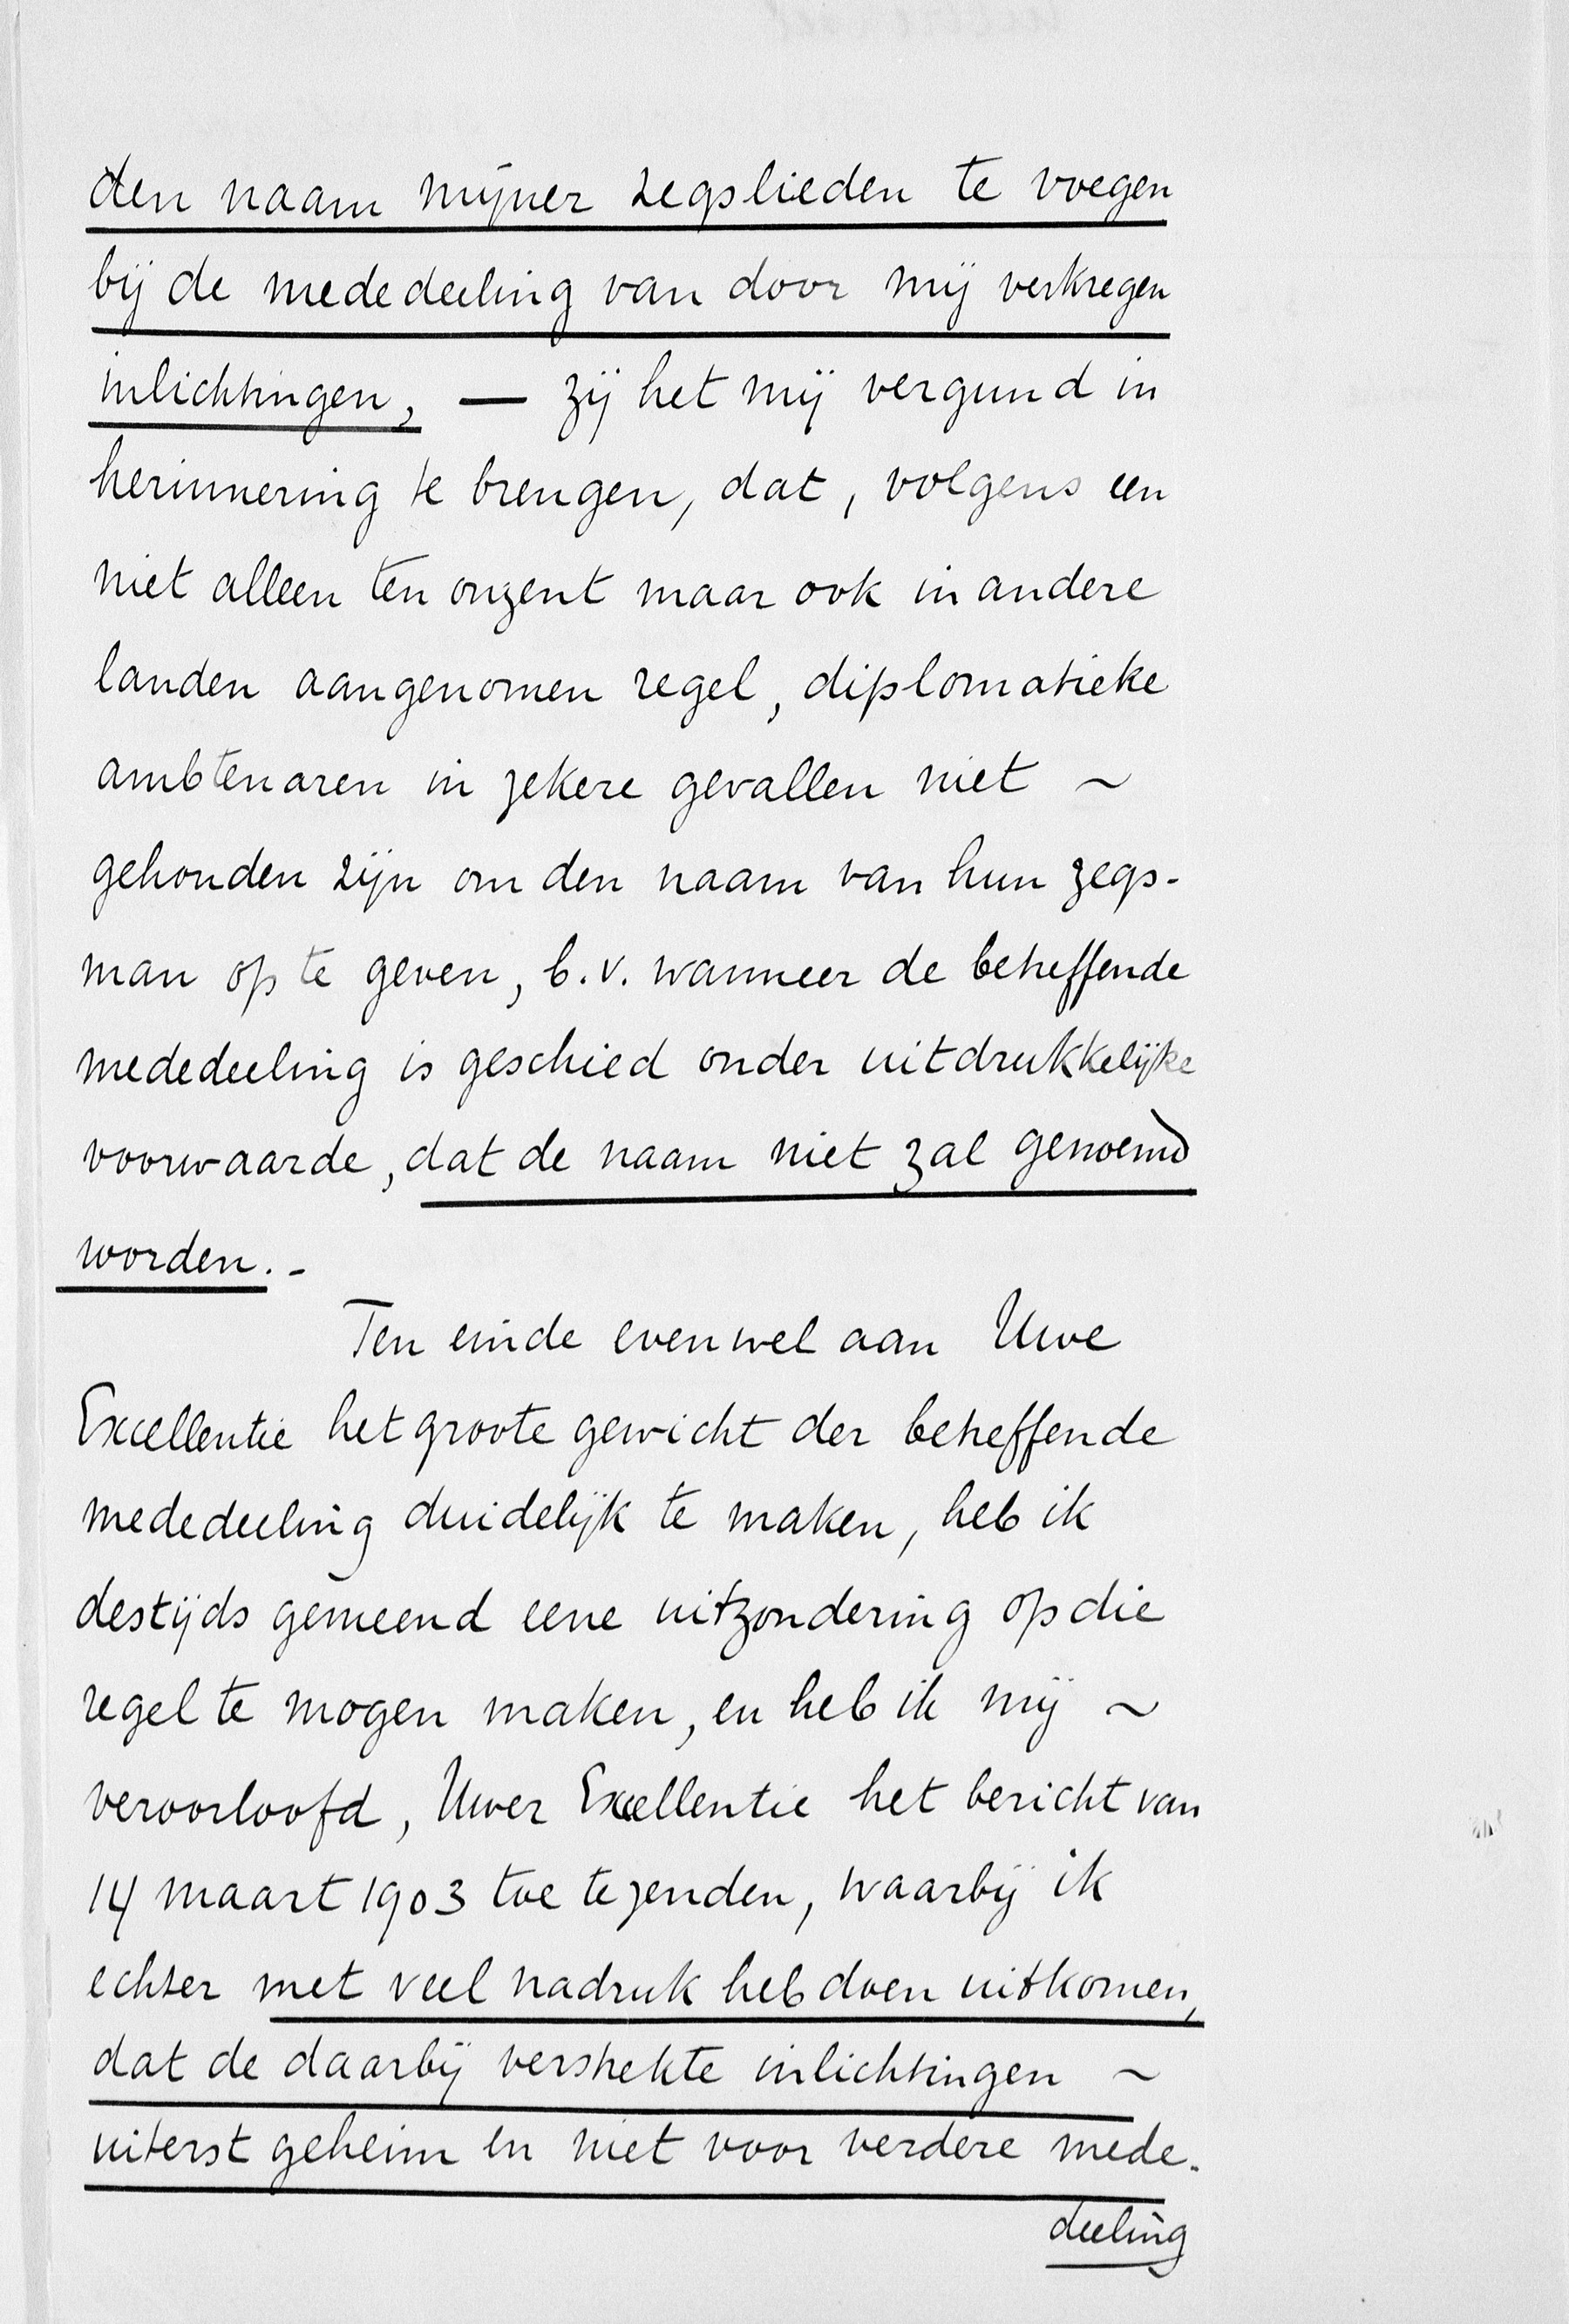 den naam mijner zegslieden te voegen
bij de mededeeling van door mij verkregen
inlichtingen, — zij het mij vergund in
herinnering te brengen, dat, volgens een
niet alleen ten onzent maar ook in andere
landen aangenomen regel, diplomatieke
ambtenaren in zekere gevallen niet ~
gehouden zijn om den naam van hun zegs-
man op te geven, b.v. wanneer de betreffende
mededeeling is geschied onder uitdrukkelijke
voorwaarde, dat de naam niet zal genoemd
worden.-
Ten einde evenwel aan Uwe
Excellentie het groote gewicht der betreffende
mededeeling duidelijk te maken, heb ik
destijds gemeend eene uitzondering op die
regel te mogen maken, en heb ik mij ~
veroorloofd, Uwer Excellentie het bericht van
14 maart 1903 toe te zenden, waarbij ik
echter met veel nadruk heb doen uitkomen,
dat de daarbij verstrekte inlichtingen ~
uiterst geheim en niet voor verdere mede-
deeling